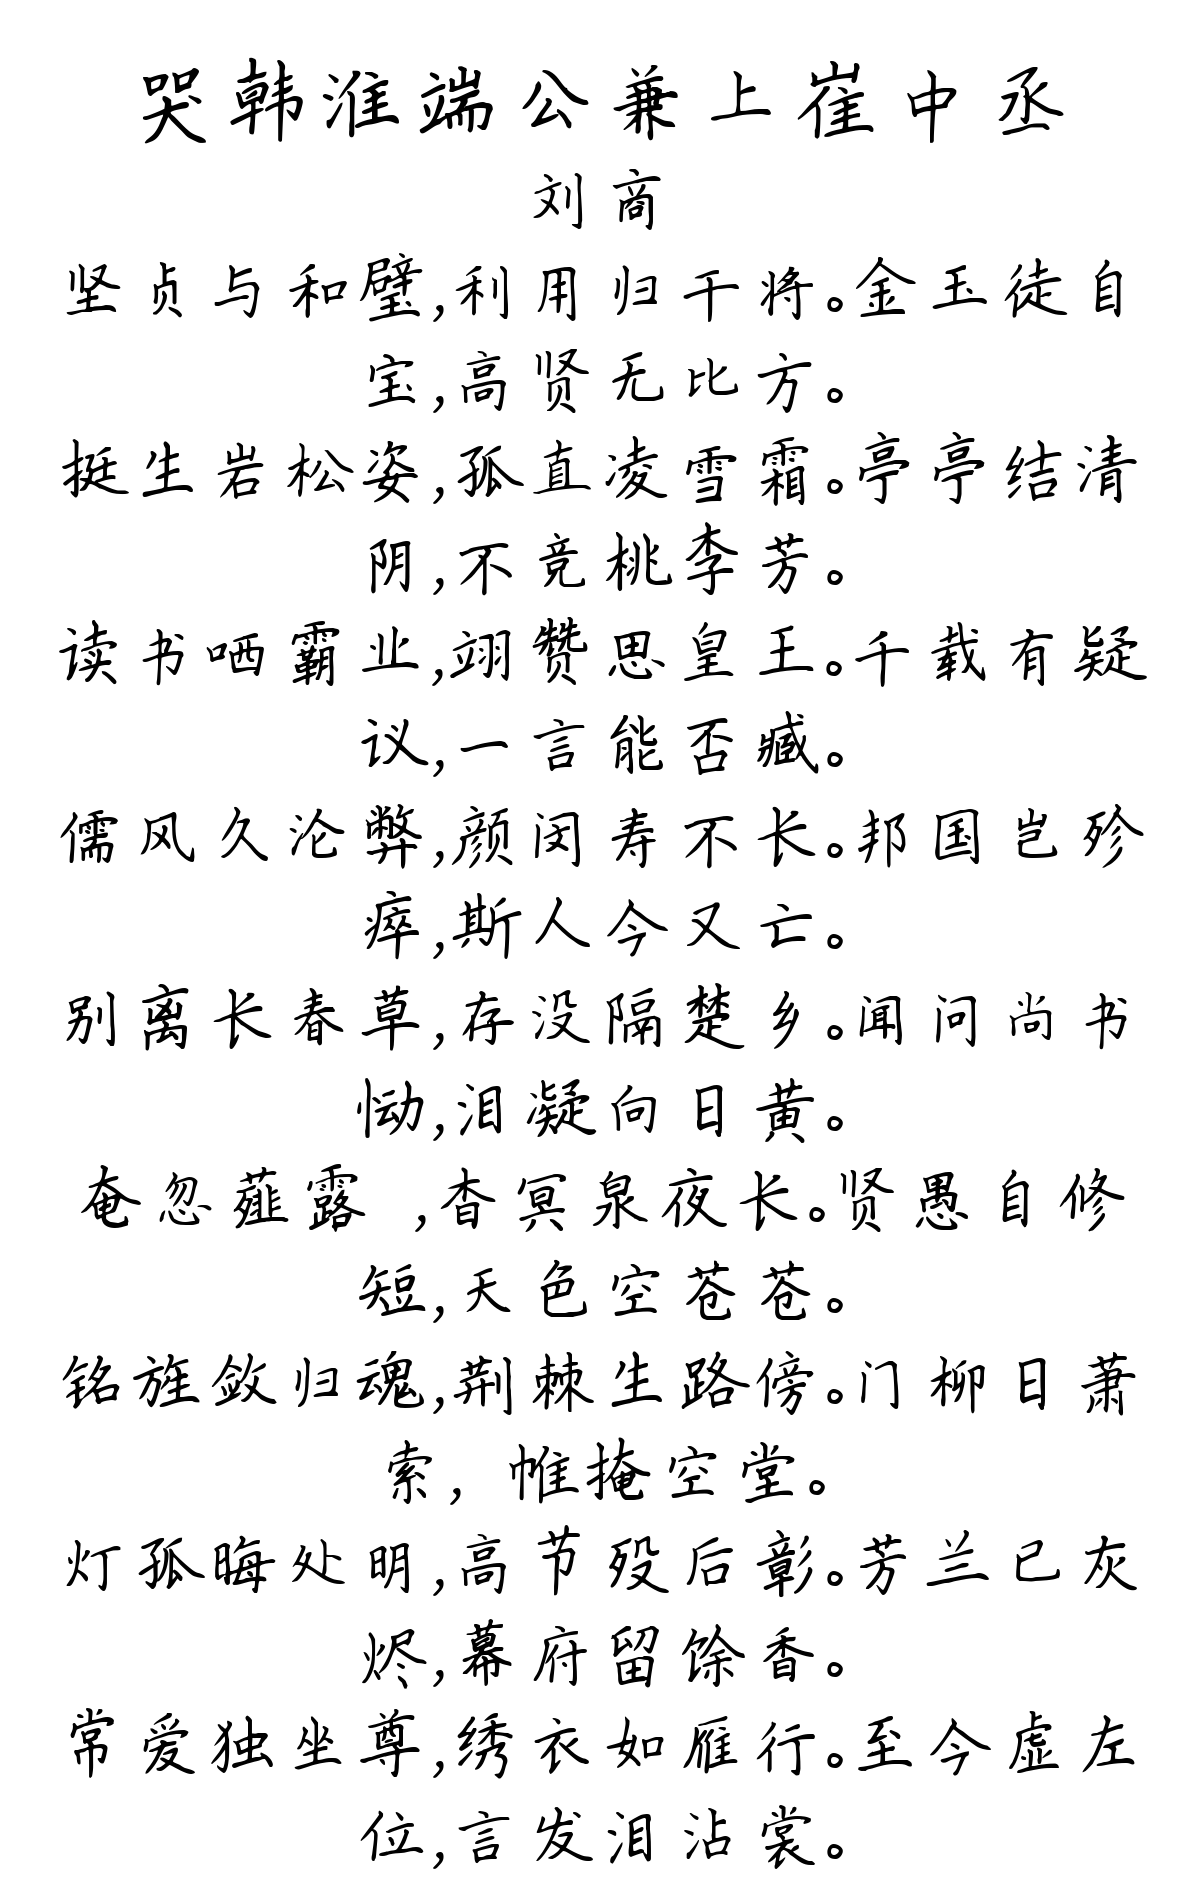 哭韩淮端公兼上崔中丞
刘商
坚贞与和璧,利用归干将。金玉徒自
宝,高贤无比方。
挺生岩松姿,孤直凌雪霜。亭亭结清
阴,不竞桃李芳。
读书哂霸业,翊赞思皇王。千载有疑
议,一言能否臧。
儒风久沦弊,颜闵寿不长。邦国岂殄
瘁,斯人今又亡。
别离长春草,存没隔楚乡。闻问尚书
恸,泪凝向日黄。
奄忽薤露 ,杳冥泉夜长。贤愚自修
短,天色空苍苍。
铭旌敛归魂,荆棘生路傍。门柳日萧
索，帷掩空堂。
灯孤晦处明,高节殁后彰。芳兰已灰
烬,幕府留馀香。
常爱独坐尊,绣衣如雁行。至今虚左
位,言发泪沾裳。